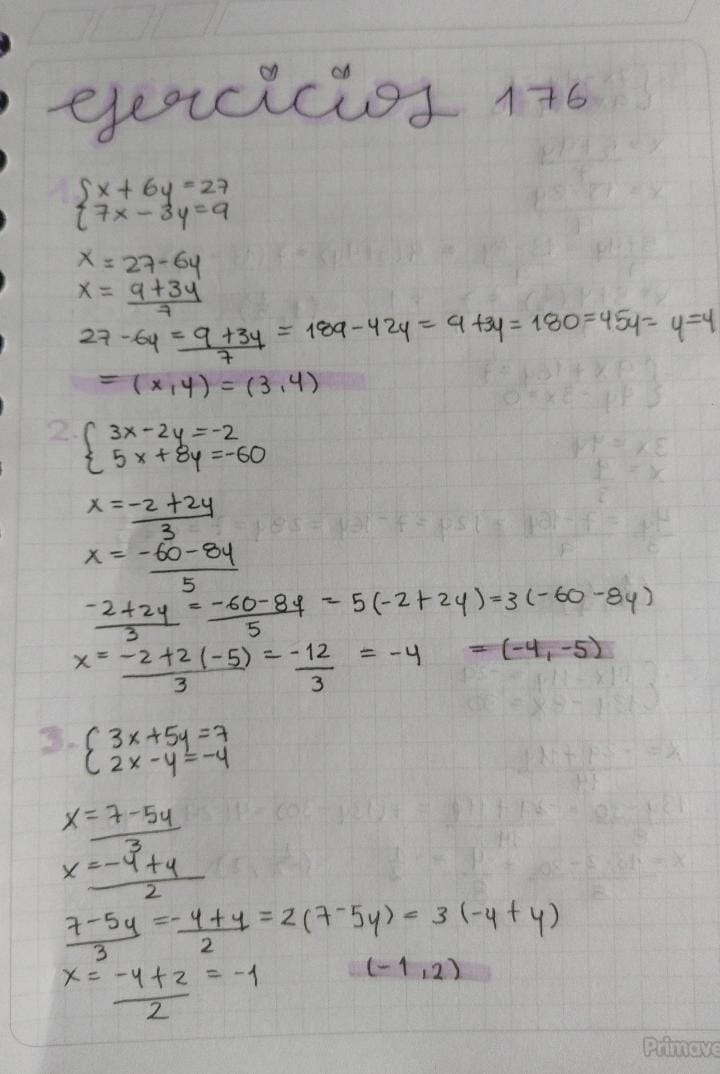 ejercicios 176
1. { x + 6y = 27
{ 7x - 3y = 9
x = 27 - 6y
x = 9 + 3y / 7
27 - 6y = 9 + 3y / 7 = 189 - 42y = 9 + 3y = 180 = 45y = y = 4
= (x, y) = (3, 4)
2. { 3x - 2y = -2
{ 5x + 8y = -60
x = -2 + 2y / 3
x = -60 - 8y / 5
-2 + 2y / 3 = -60 - 8y / 5 = 5(-2 + 2y) = 3(-60 - 8y)
x = -2 + 2(-5) / 3 = -12 / 3 = -4 = (-4, -5)
3. { 3x + 5y = 7
{ 2x - y = -4
x = 7 - 5y / 3
x = -4 + y / 2
7 - 5y / 3 = -4 + y / 2 = 2(7 - 5y) = 3(-4 + y)
x = -4 + 2 / 2 = -1 (-1, 2)